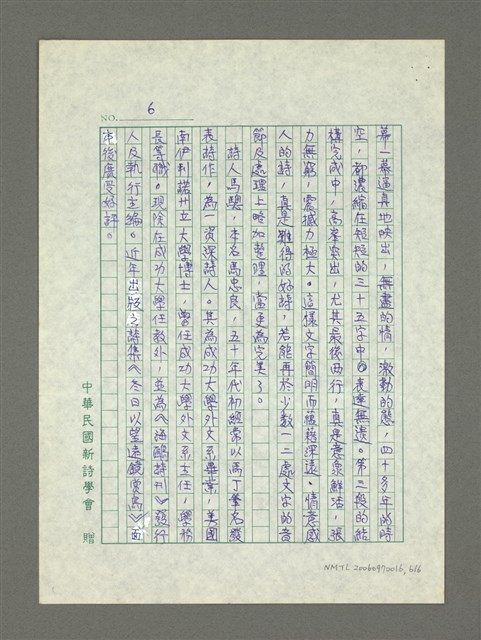 NO. 6
幕一幕逼真地映出，無盡的情，激動的慰，四十多年的時
空，都濃縮在短短的三十五字中，表達無遺。第三段的結
構完成中，高峯突出，尤其最後兩行，真是意象鮮活，張
力無窮，震撼力極大。這樣文字簡明而蘊藉深遠，情意感
人的詩，真是難得的好詩，若能再於少數一二處文字的音
節及處理上略加整理，當更為完美了。
詩人馬驄，本名馬忠良，五十年代初經常以馬丁筆名發
表詩作，為一資深詩人。其為成功大學外文系畢業，美國
南伊利諾州立大學博士，曾任成功大學外文系主任，學務
長等職。現除在成功大學任教外，並為《海鷗詩刊》發行
人及執行主編。近年出版之詩集《冬日以望遠鏡賞鳥》面
世後廣受好評。
中華民國新詩學會 贈
NMTL 20060970016, 6/6